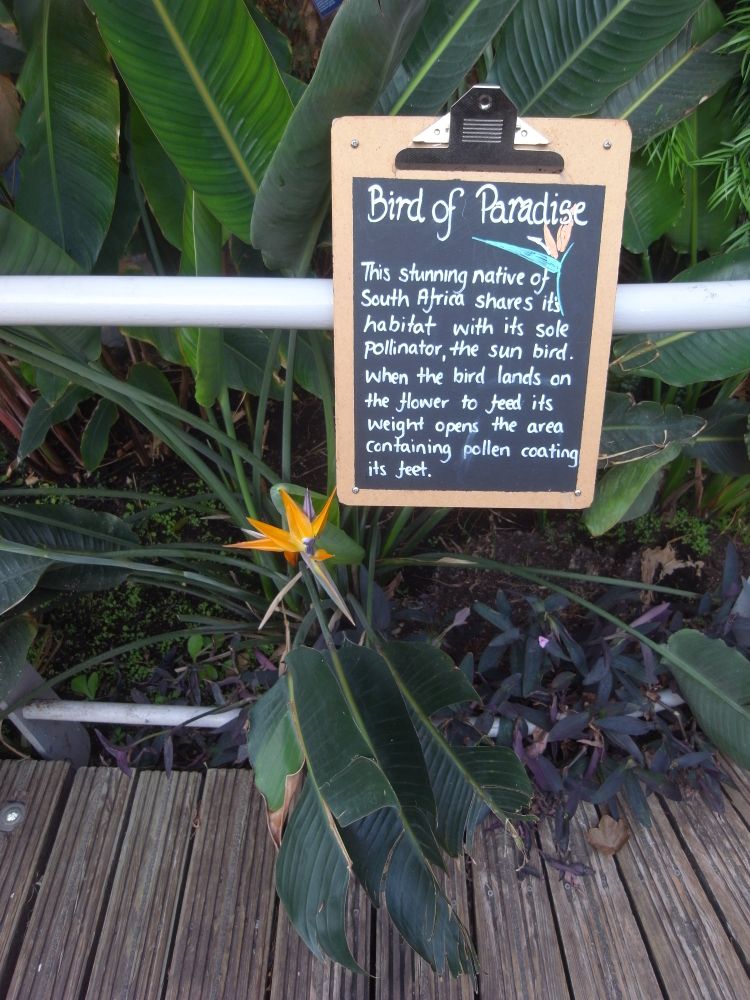 Bird of Paradise
This stunning native of
South Africa shares its
habitat with its sole
pollinator, the sun bird.
When the bird lands on
the flower to feed its
weight opens the area
containing pollen coating
its feet.